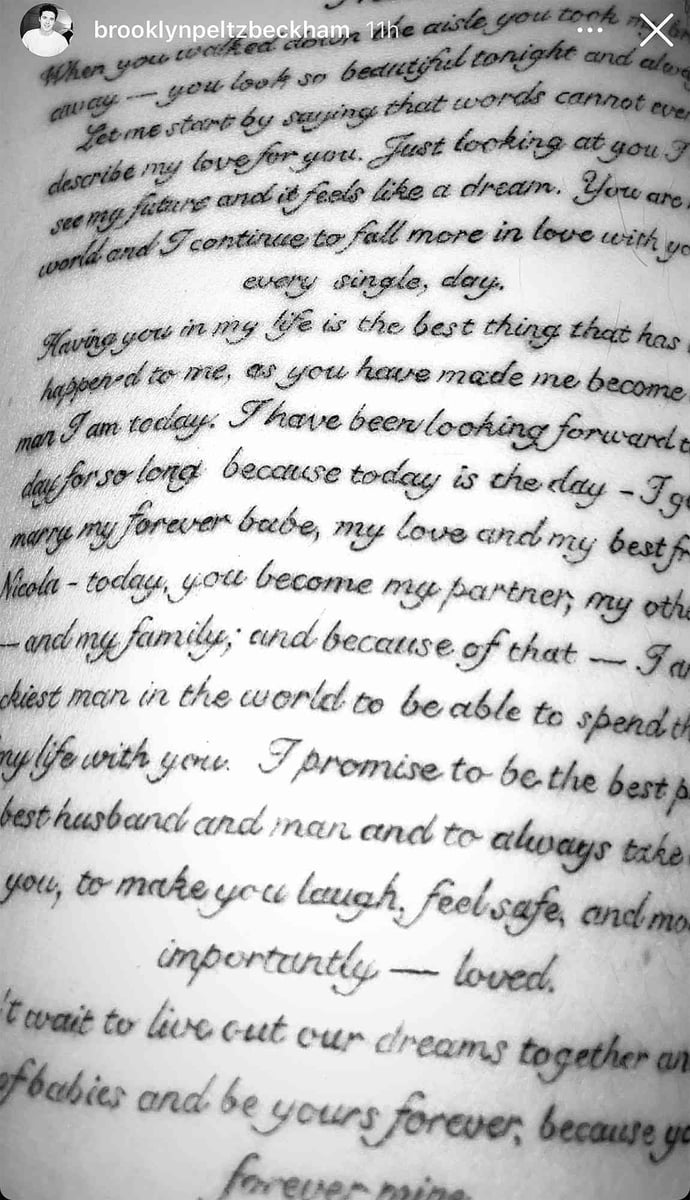 brooklynpeltzbeckham 11h
When you walked down the aisle you took my
away — you look so beautiful tonight and
Let me start by saying that words cannot
describe my love for you. Just looking at you I
see my future and it feels like a dream. You are
world and I continue to fall more in love with
every single, day.
Having you in my life is the best thing that has
happened to me, as you have made me become
man I am today. I have been looking forward
day for so long because today is the day - I
marry my forever babe, my love and my best
Nicola - today, you become my partner, my
— and my family; and because of that — I
man in the world to be able to spend
life with you. I promise to be the best
best husband and man and to always take
you, to make you laugh, feel safe, and
importantly — loved.
't wait to live out our dreams together
of babies and be yours forever, because
forever mine